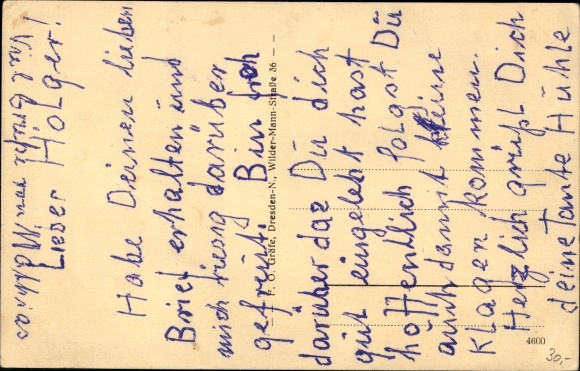 Viele Grüße von Mathias
Lieber Holger!
Habe Deinen lieben
Brief erhalten und
mich riesig darüber
gefreut. Bin froh
F. O. Gräfe, Dresden-N., Wilder-Mann-Straße 36
darüber das Du dich
gut eingelebt hast
hoffentlich folgst Du
auch damit keine
Klagen kommen.
Herzlich grüßt Dich
deine Tante Hühle
4600
30,-